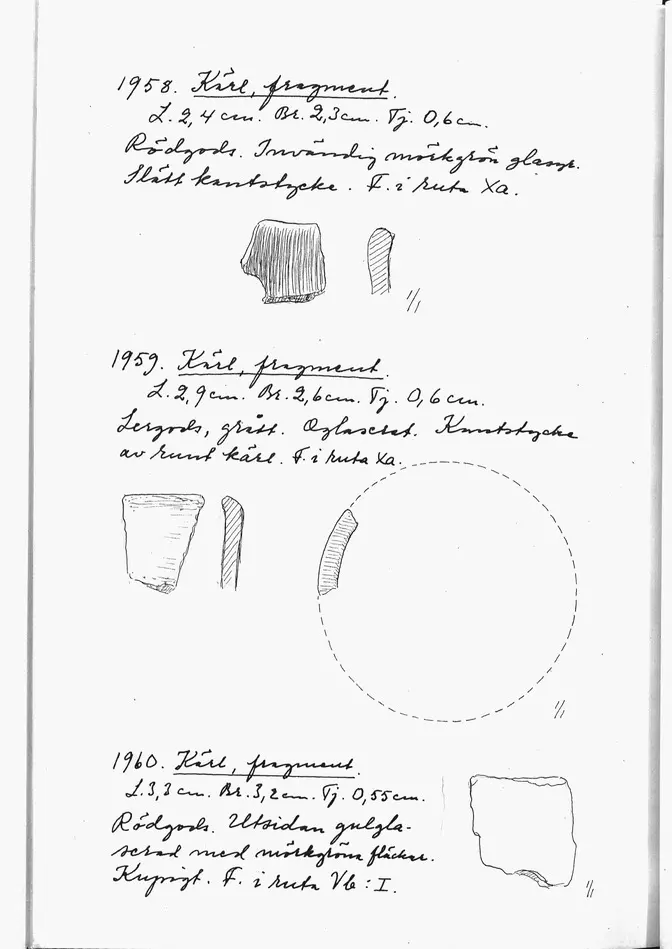 1958. Kärl, fragment.
L. 2,4 cm. Br. 2,3 cm. Tj. 0,6 cm.
Rödgods. Invändig mörkgrön glasyr.
Slätt kantstycke. F. i ruta Xa.
1/1
1959. Kärl, fragment.
L. 2,9 cm. Br. 2,6 cm. Tj. 0,6 cm.
Lergods, grått. Oglaserat. Kantstycke
av runt kärl. F. i ruta Xa.
1/1
1960. Kärl, fragment.
L. 3,3 cm. Br. 3,2 cm. Tj. 0,55 cm.
Rödgods. Utsidan gulgla-
serad med mörkgröna fläckar.
Kupigt. F. i ruta Vb : I.
1/1